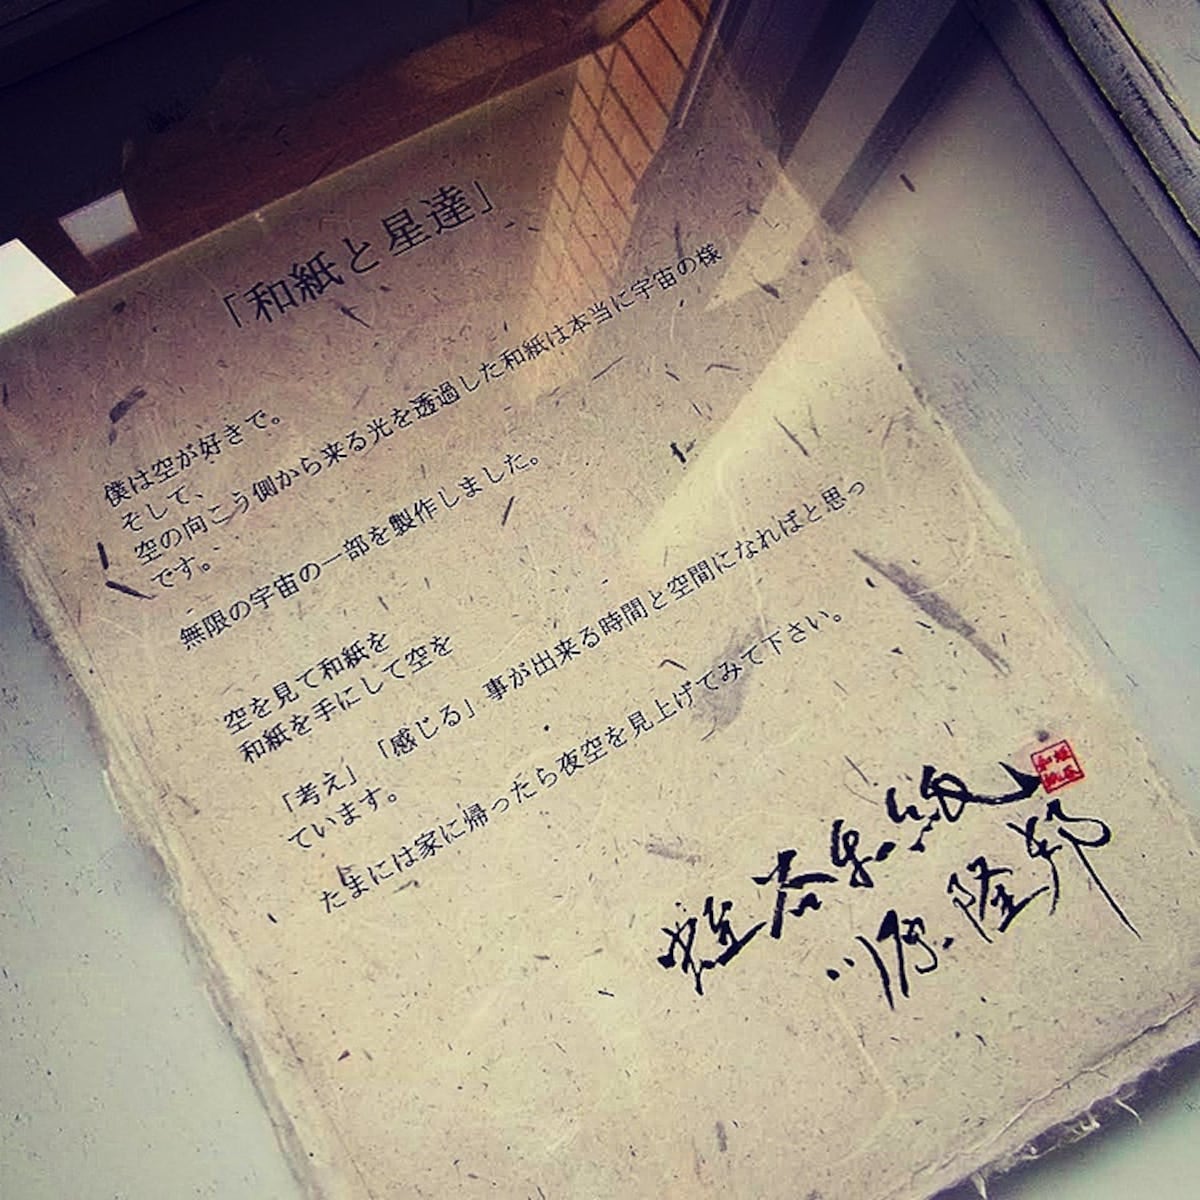 「和紙と星達」
僕は空が好きで。
そして、
空の向こう側から来る光を透過した和紙は本当に宇宙の様
です。
無限の宇宙の一部を製作しました。
空を見て和紙を
和紙を手にして空を
「考え」「感じる」事が出来る時間と空間になればと思っ
ています。
たまには家に帰ったら夜空を見上げてみて下さい。
蛭谷和紙
川原隆邦